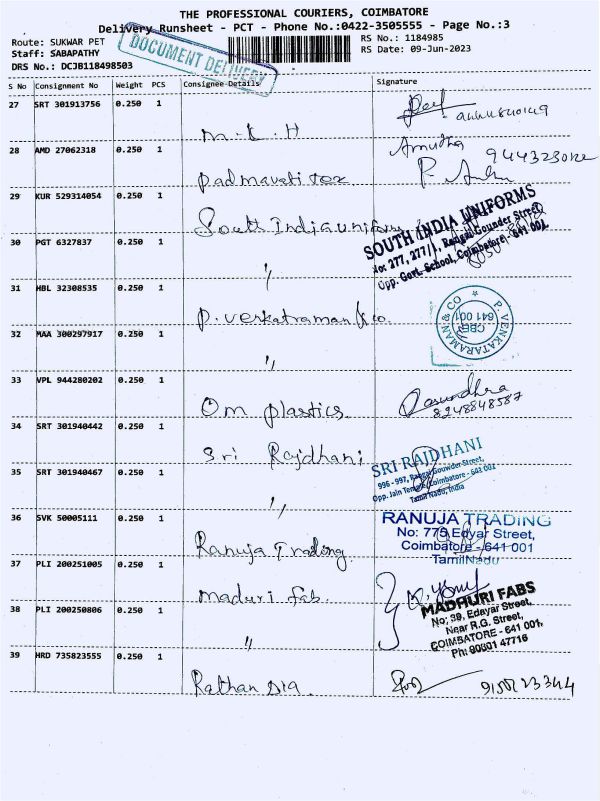 THE PROFESSIONAL COURIERS, COIMBATORE
Delivery Runsheet - PCT - Phone No.:0422-3505555 - Page No.:3
Route: SUKWAR PET
RS No.: 1184985
Staff: SABAPATHY
RS Date: 09-Jun-2023
DRS No.: DCJB118498503
DOCUMENT DELIVERY
S No Consignment No Weight PCS Consignee Details Signature
27 SRT 301913756 0.250 1
M.K.H
28 AMD 27062318 0.250 1
Amutha
Padmavati tex
29 KUR 529314054 0.250 1
South India uniforms
SOUTH INDIA UNIFORMS
No: 277, 277/1, Rangai Gounder Street,
Opp. Govt. School, Coimbatore - 641 001.
30 PGT 6327837 0.250 1
"
31 HBL 32308535 0.250 1
P. Venkatraman & co.
P. VENKATARAMAN & CO
CBE
641 001
32 MAA 300297917 0.250 1
"
33 VPL 944280202 0.250 1
Om plastics
8248848587
34 SRT 301940442 0.250 1
Sri Rajdhani
SRI RAJDHANI
996 - 997, Rangai Gouwder Street,
Opp. Jain Temple, Coimbatore - 641 001
Tamil Nadu, India
35 SRT 301940467 0.250 1
"
36 SVK 50005111 0.250 1
Ranuja Trading
RANUJA TRADING
No: 775 Edyar Street,
Coimbatore - 641 001
TamilNadu
37 PLI 200251005 0.250 1
Maduri fab.
MADHURI FABS
No; 39, Edayar Street,
Near R.G. Street,
COIMBATORE - 641 001,
Ph: 90801 47716
38 PLI 200250806 0.250 1
"
39 HRD 735823555 0.250 1
Rathan